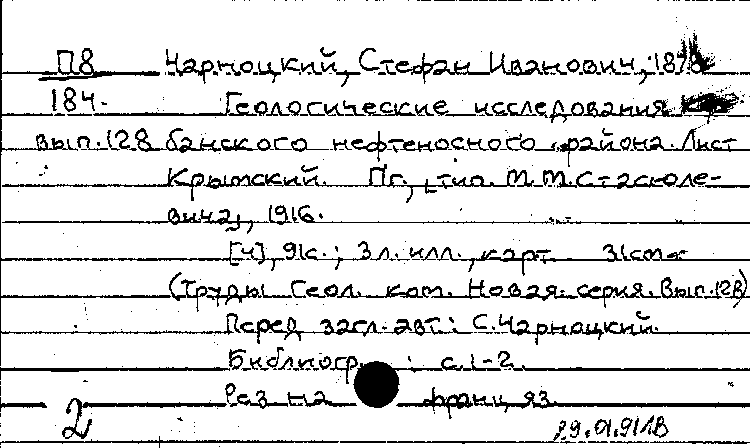 П8 Чарноцкий, Стефан Иванович, 1878
184. Геологические исследования Ку-
вып.128 банского нефтеносного района. Лист
Крымский. Пг., [тип. М.М. Стасюле-
вича], 1916.
[4], 91с.; 3 л. илл., карт 31см
(Труды Геол. ком. Новая серия. Вып. 128)
Перед загл. авт.: С. Чарноцкий.
Библиогр.: с. 1-2.
Рез. на франц яз.
2 29.01.91